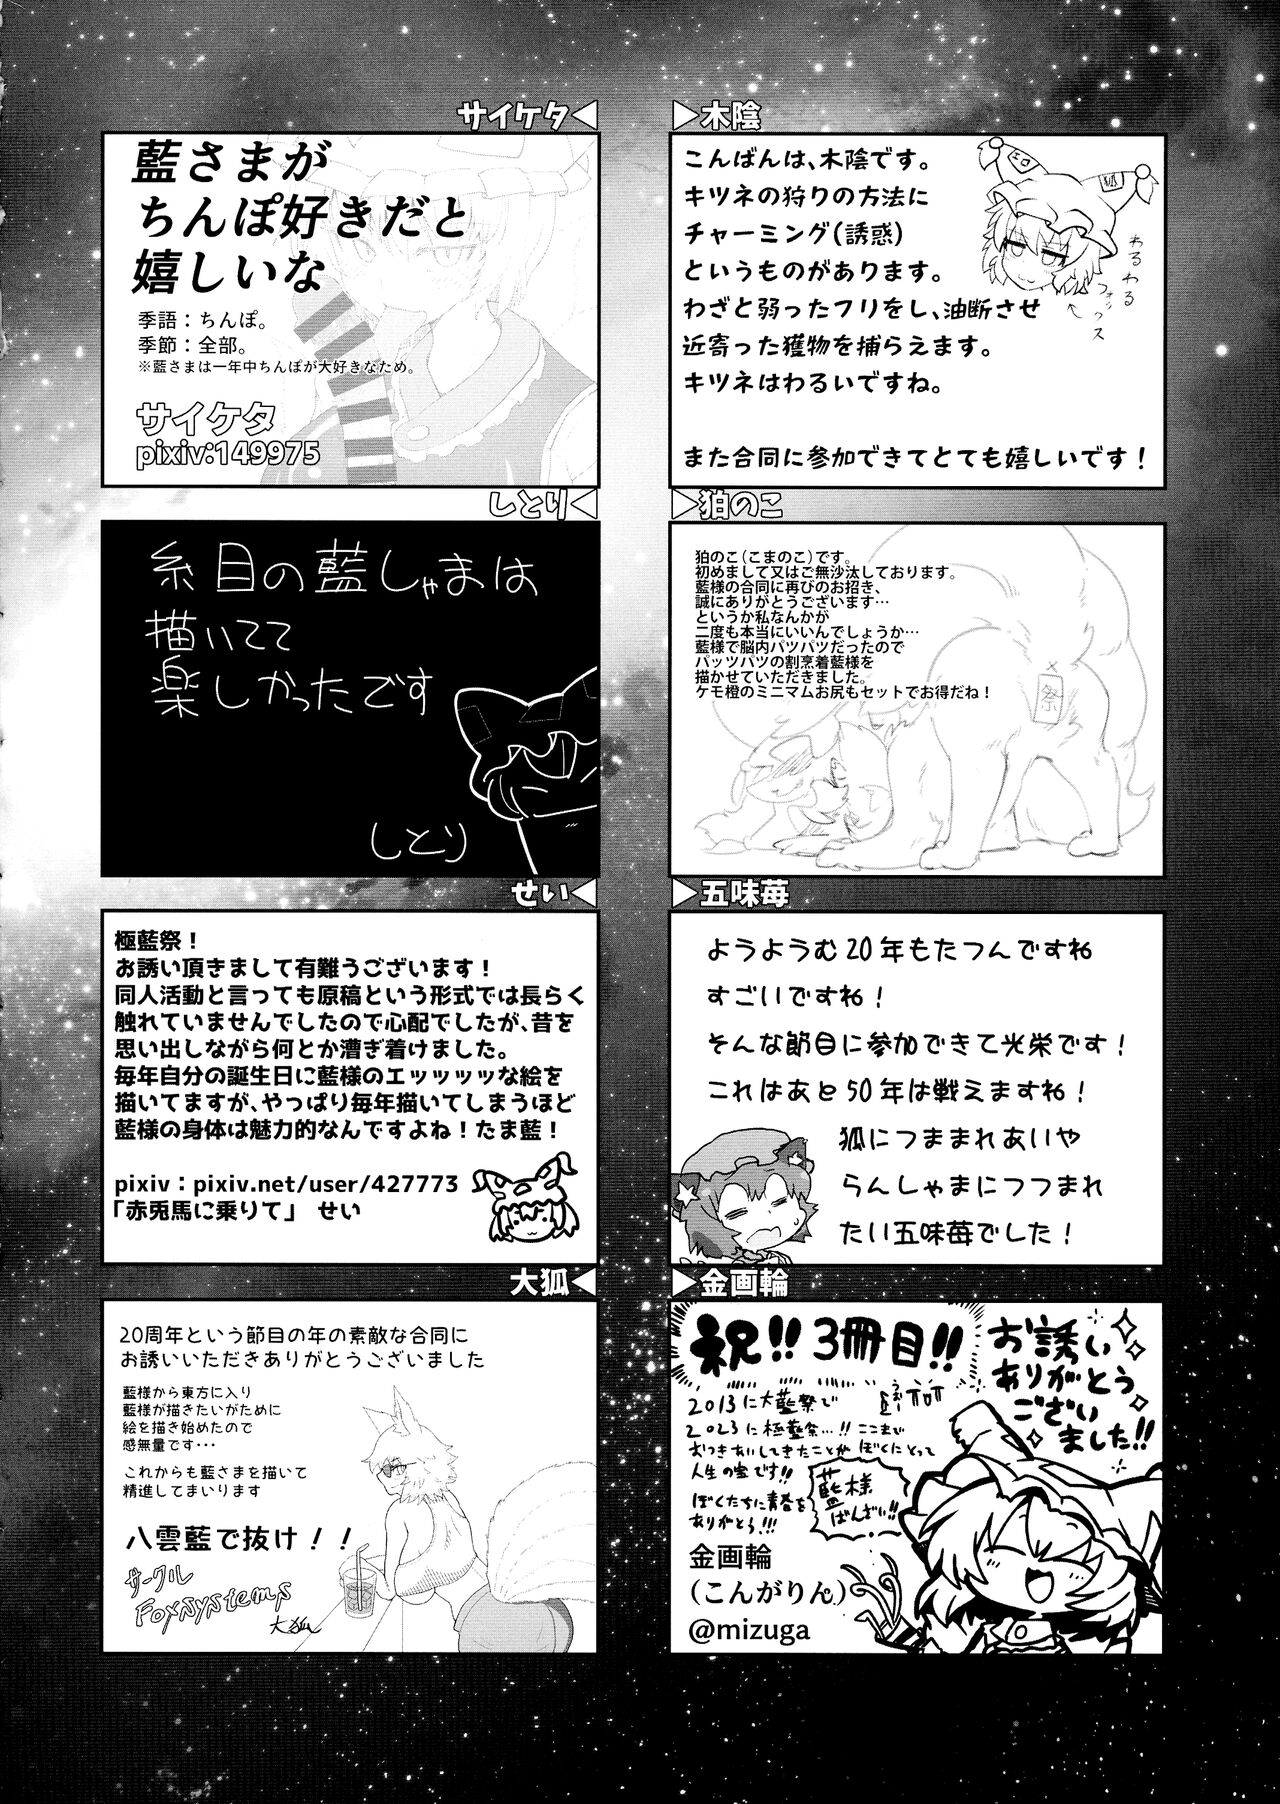 ▷木陰
こんばんは、木陰です。
キツネの狩りの方法に
チャーミング(誘惑)
というものがあります。
わざと弱ったフリをし、油断させ
近寄った獲物を捕らえます。
キツネはわるいですね。
また合同に参加できてとても嬉しいです！
エロ
狐
わるわる
フォックス
サイケタ◁
藍さまが
ちんぽ好きだと
嬉しいな
季語：ちんぽ。
季節：全部。
※藍さまは一年中ちんぽが大好きなため。
サイケタ
pixiv:149975
▷狛のこ
狛のこ（こまのこ）です。
初めまして又はご無沙汰しております。
藍様の合同に再びのお招き、
誠にありがとうございます…
というか私なんかが
二度も本当にいいんでしょうか…
藍様で脳内パツパツだったので
パッツパツの割烹着藍様を
描かせていただきました。
ケモ橙のミニマムお尻もセットでお得だね！
祭
しとり◁
糸目の藍しゃまは
描いてて
楽しかったです
しとり
▷五味苺
ようようむ20年もたつんですね
すごいですね！
そんな節目に参加できて光栄です！
これはあと50年は戦えますね！
狐につままれあいや
らんしゃまにつつまれ
たい五味苺でした！
せい◁
極藍祭！
お誘い頂きまして有難うございます！
同人活動と言っても原稿という形式では長らく
触れていませんでしたので心配でしたが、昔を
思い出しながら何とか漕ぎ着けました。
毎年自分の誕生日に藍様のエッッッッな絵を
描いてますが、やっぱり毎年描いてしまうほど
藍様の身体は魅力的なんですよね！たま藍！
pixiv：pixiv.net/user/427773
「赤兎馬に乗りて」　せい
▷金画輪
祝!! 3冊目!!
お誘い
ありがとう
ござい
ました!!
2013に大藍祭で
2023に極藍祭…!! ここまで
おつきあいしてきたことが ぼくにとって
人生の宝です!!
ぼくたちに青春を
ありがとう!!!
藍様
ばんざい!!
金画輪
（こんがりん）
@mizuga
大狐◁
20周年という節目の年の素敵な合同に
お誘いいただきありがとうございました
藍様から東方に入り
藍様が描きたいがために
絵を描き始めたので
感無量です･･･
これからも藍さまを描いて
精進してまいります
八雲藍で抜け！！
サークル
Foxsystems
大狐